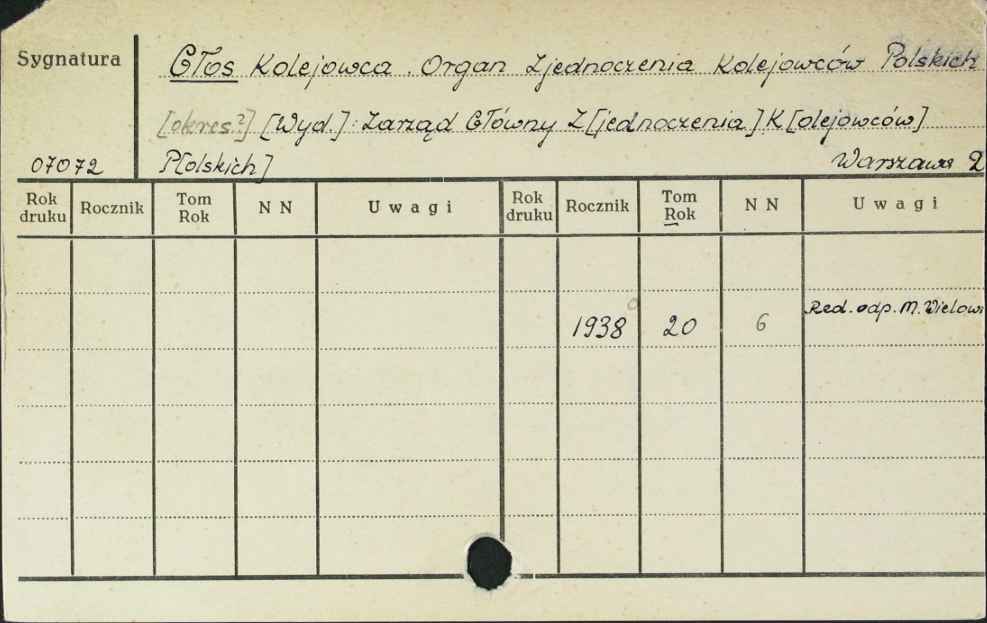 Sygnatura
Głos Kolejowca. Organ Zjednoczenia Kolejowców Polskich
[okres?] [Wyd.]: Zarząd Główny Z[jednoczenia] K[olejowców]
07072 P[olskich] Warszawa
Rok druku Rocznik Tom Rok N N Uwagi Rok druku Rocznik Tom Rok N N Uwagi
1938 20 6 Red. odp. M. Wielow